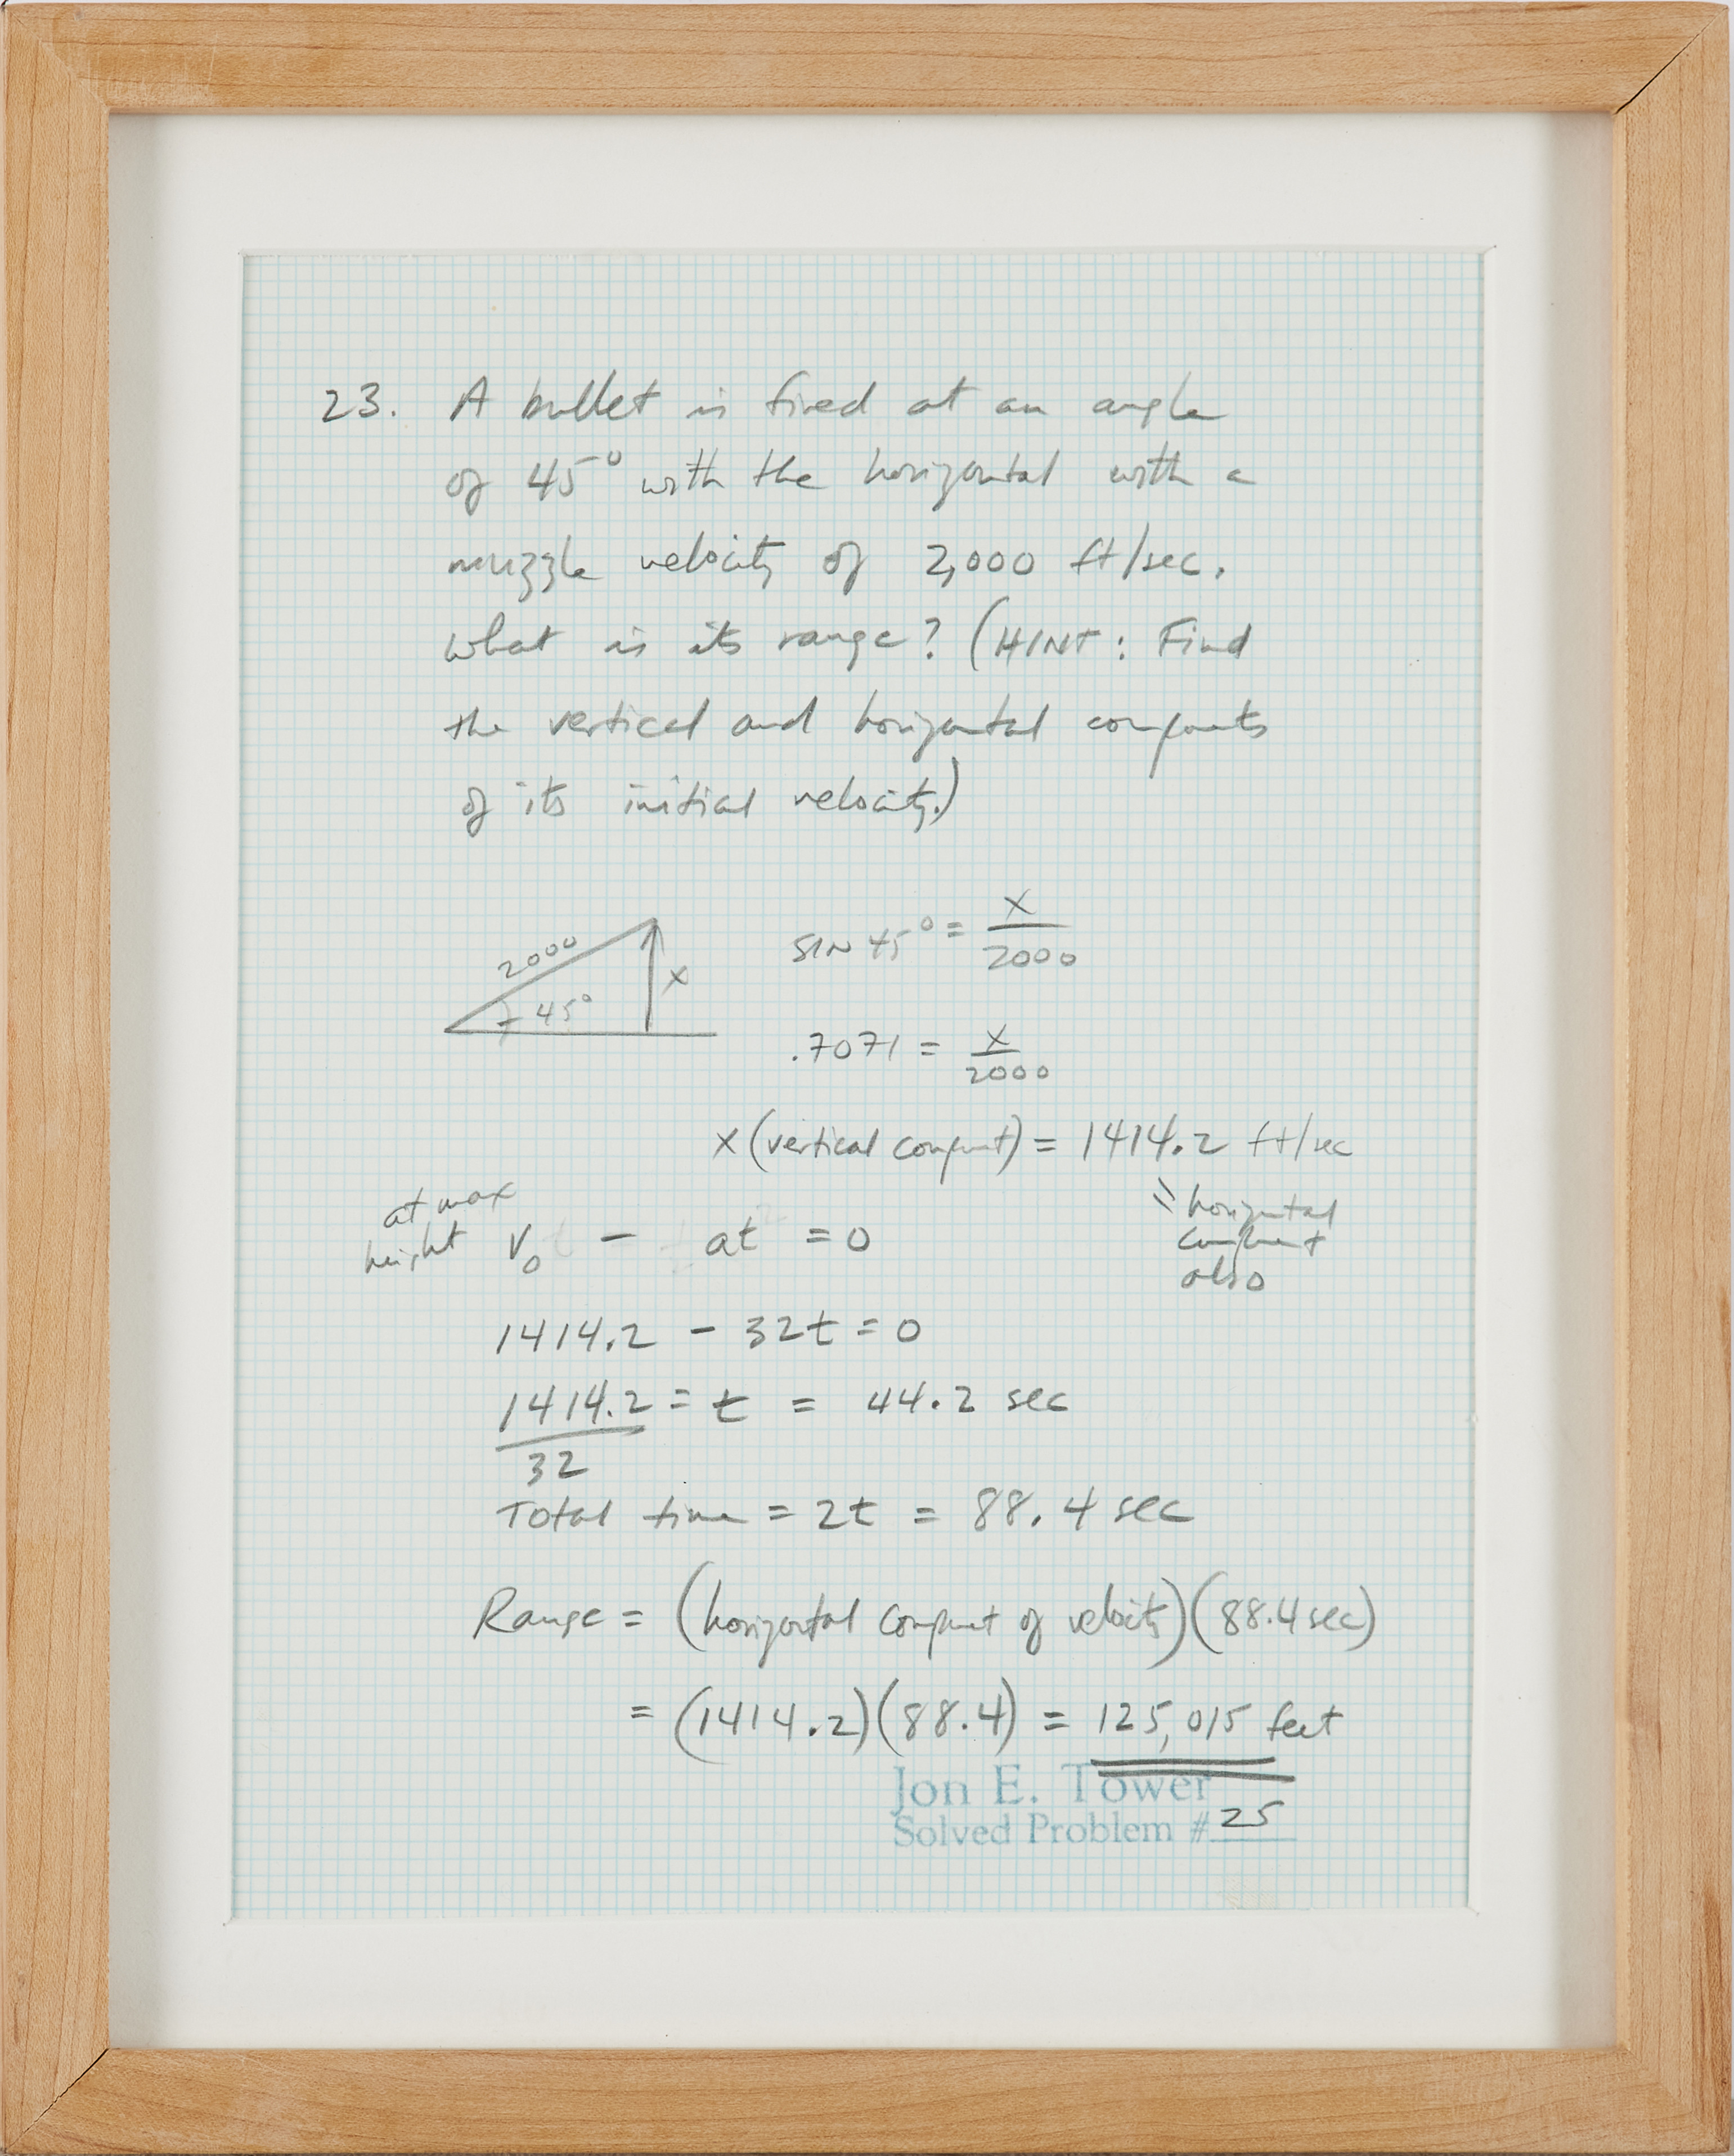 23. A bullet is fired at an angle
of 45° with the horizontal with a
muzzle velocity of 2,000 ft/sec.
What is its range? (HINT: Find
the vertical and horizontal components
of its initial velocity.)
2000
45°
x
SIN 45° = x/2000
.7071 = x/2000
x (vertical component) = 1414.2 ft/sec
" horizontal
component
also
at max
height V₀ - at = 0
1414.2 - 32t = 0
1414.2/32 = t = 44.2 sec
Total time = 2t = 88.4 sec
Range = (horizontal component of velocity)(88.4 sec)
= (1414.2)(88.4) = 125,015 feet
Jon E. Tower
Solved Problem # 25